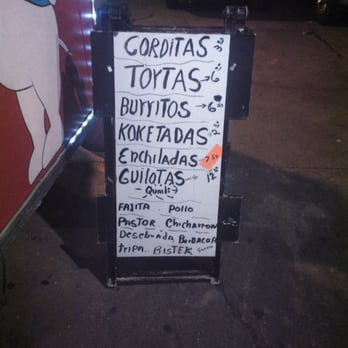 GORDITAS 3
TORTAS 6
BURRITOS 6
KOKETADAS 2
Enchiladas 7.50
GUILOTAS 12
FAJITA Pollo
PASTOR Chicharron
Desebrada BARBACOA
tripa BISTEK